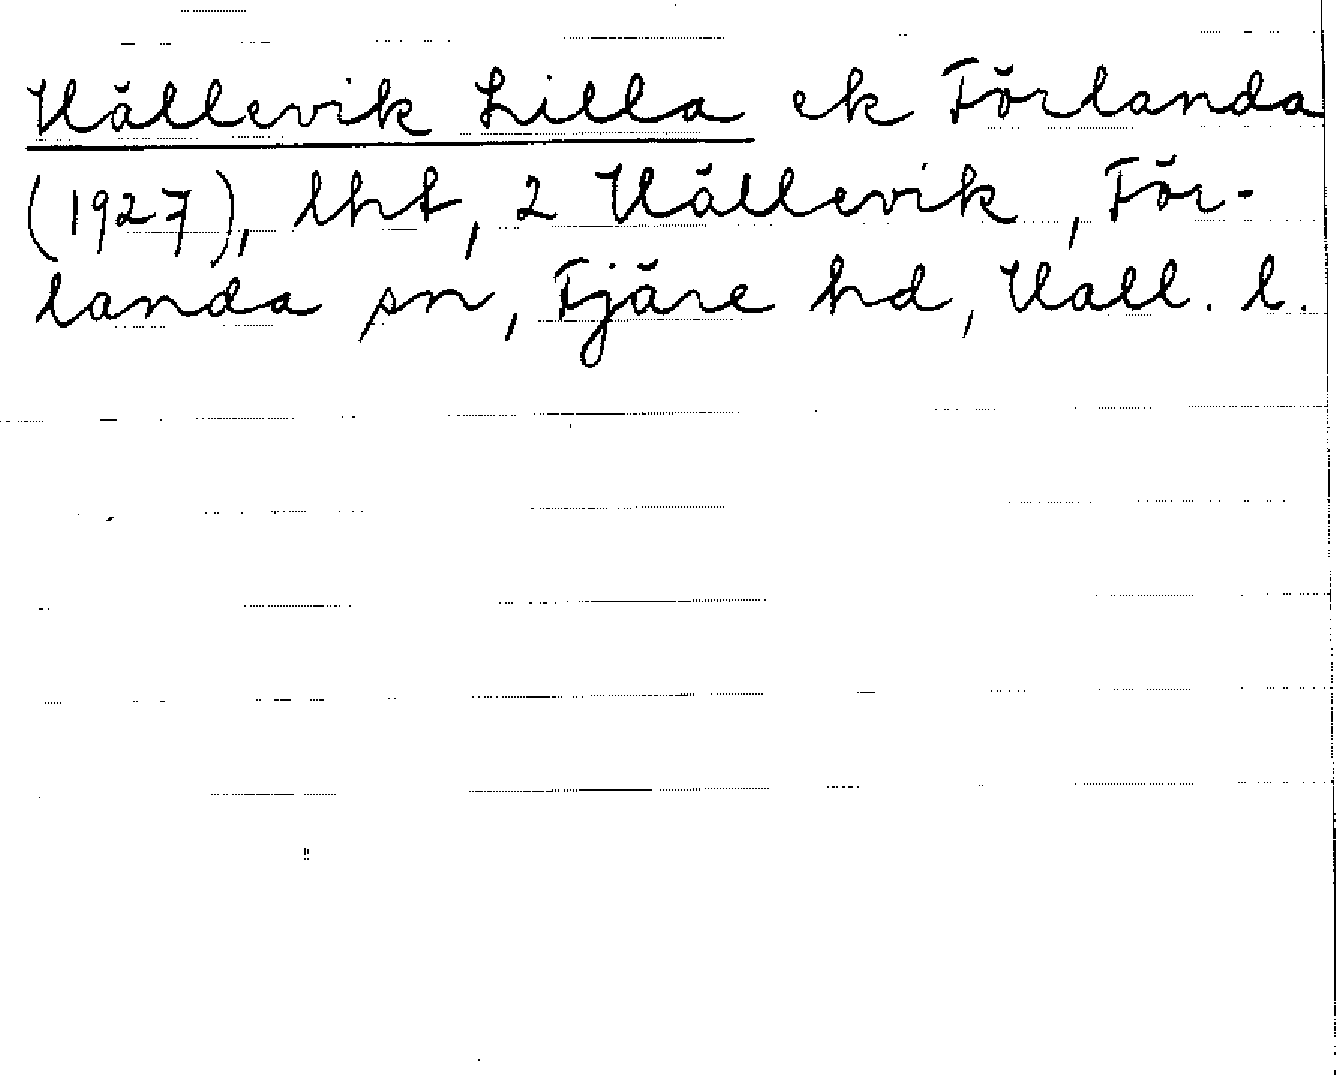 Hällevik Lilla ek Förlanda
(1927), lht, 2 Hällevik, För-
landa sn, Fjäre hd, Hall. l.